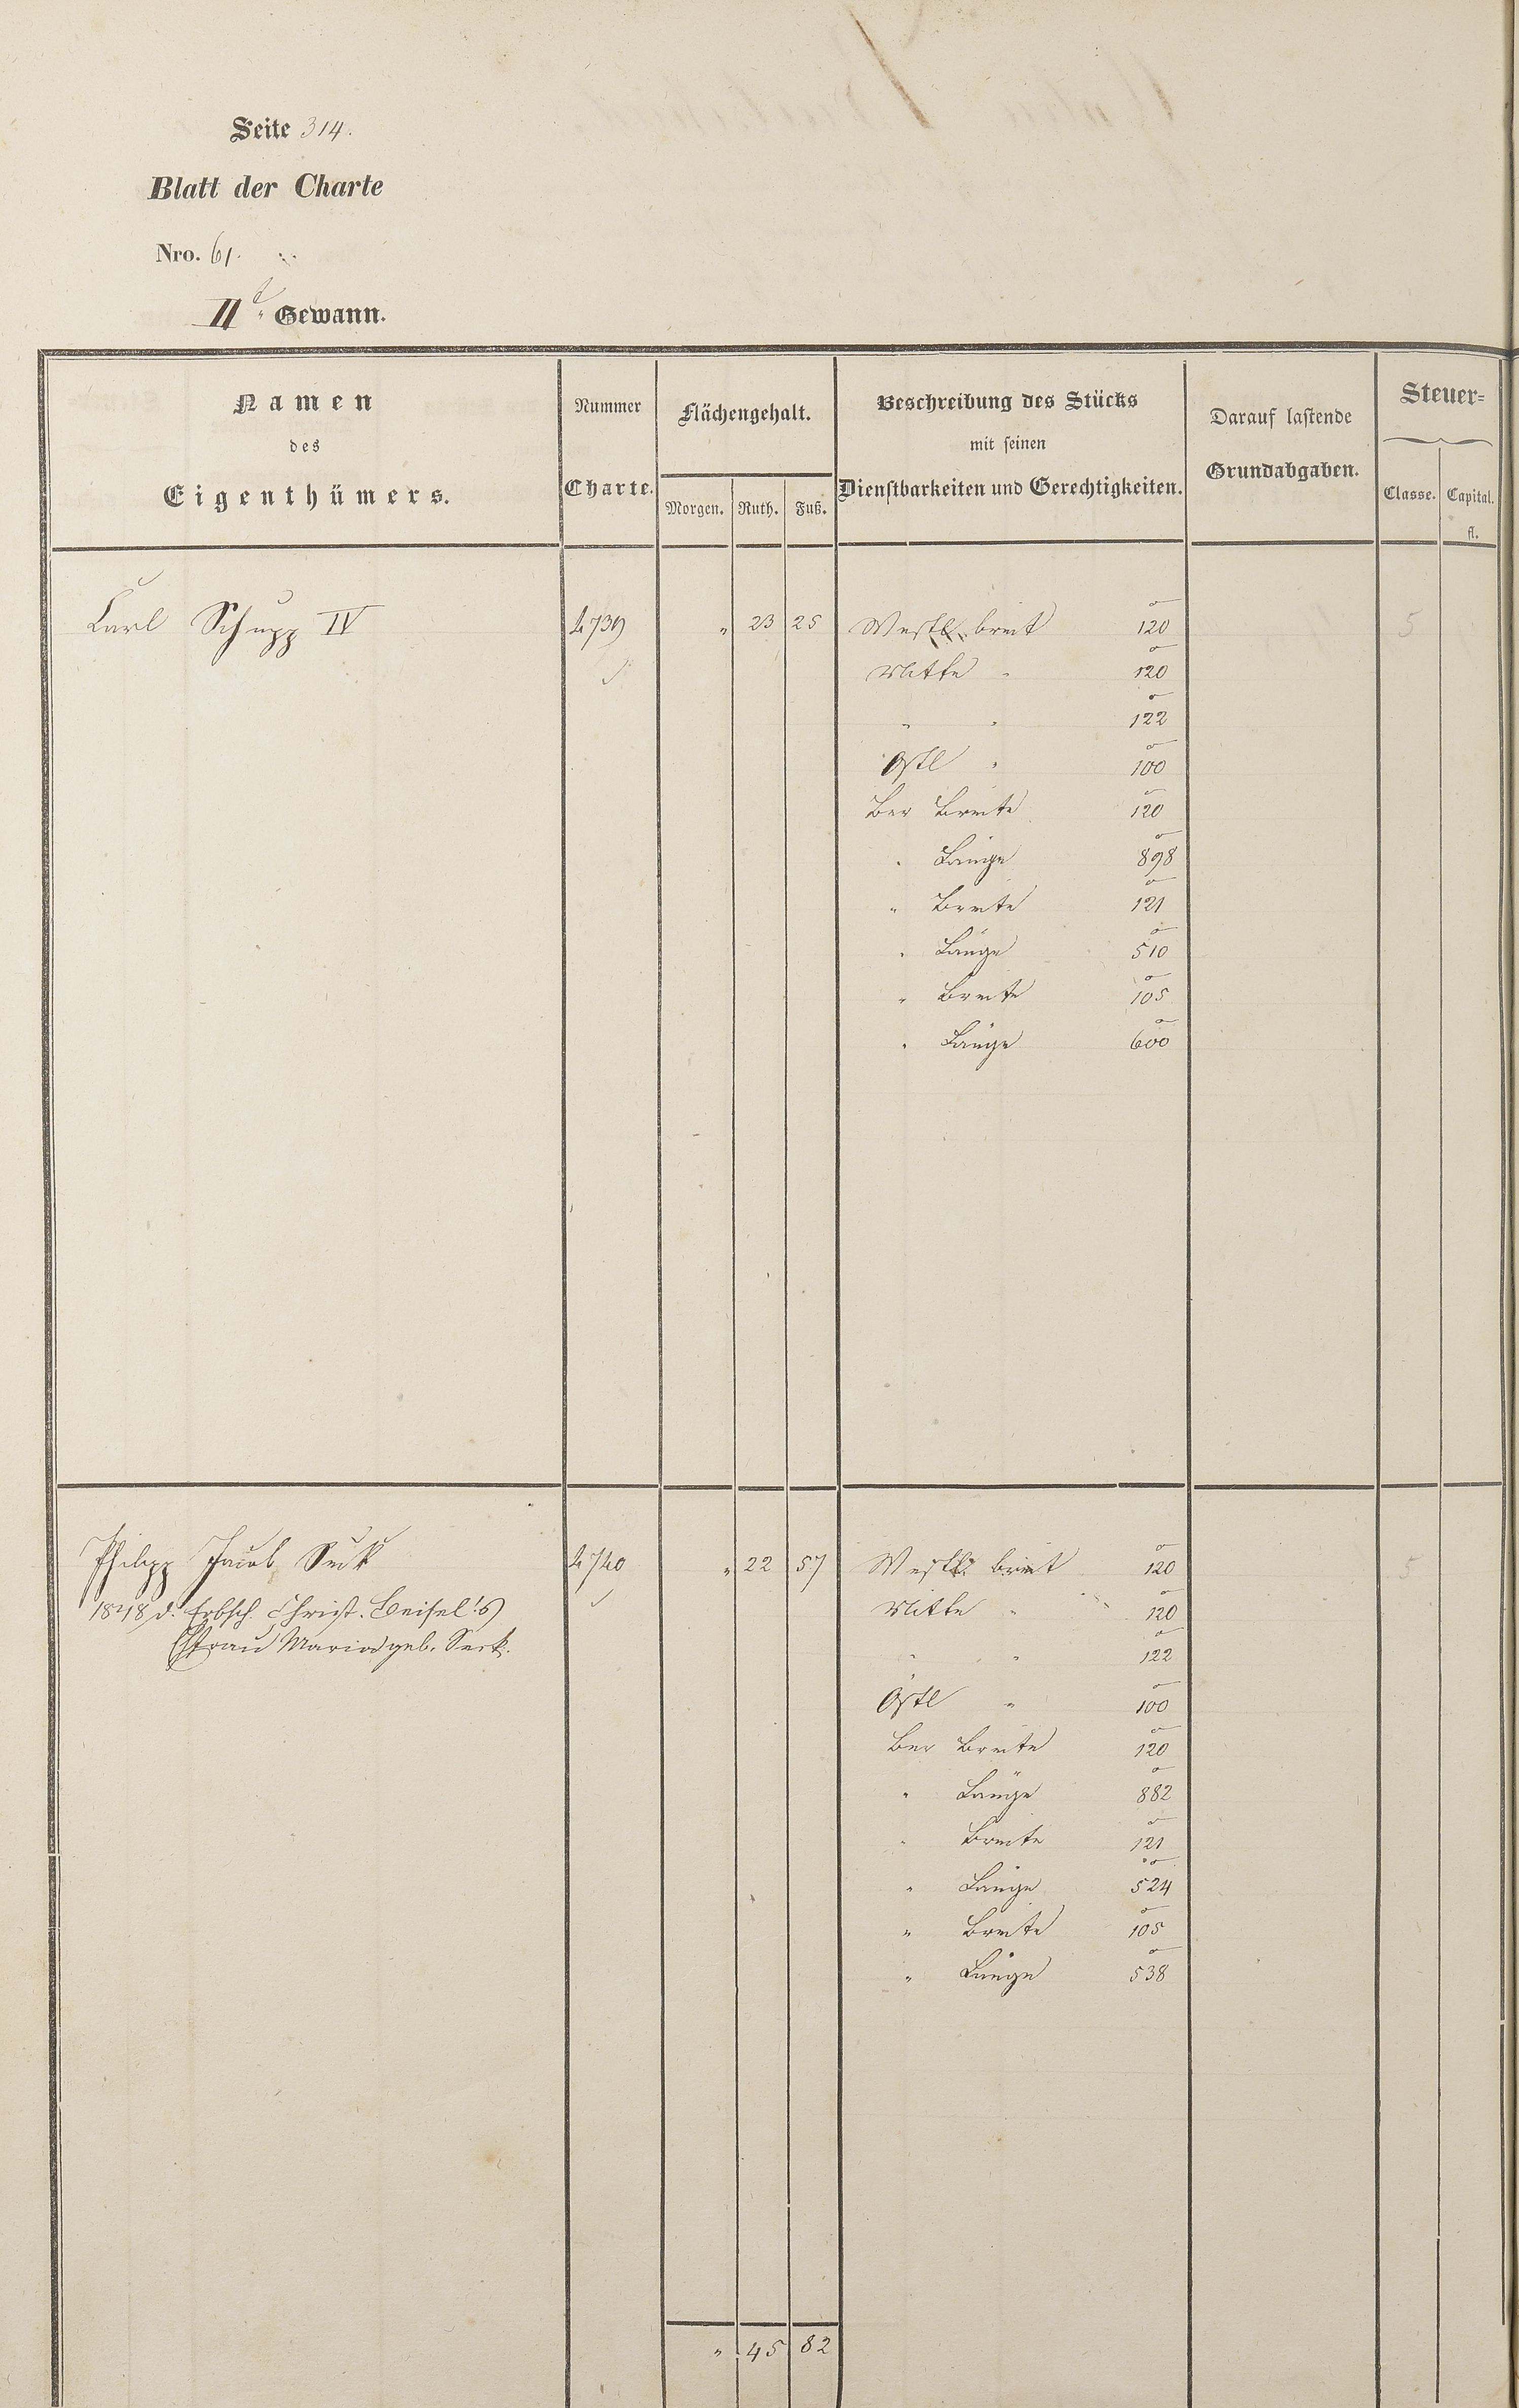 Seite 314.
Blatt der Charte
Nro. 61.
IIt. Gewann.
Namen
des
Eigenthümers.
Nummer
Charte.
Flächengehalt.
Morgen. Ruth. Fuß.
Beschreibung des Stücks
mit seinen
Dienstbarkeiten und Gerechtigkeiten.
Darauf lastende
Grundabgaben.
Steuer=
Classe. Capital.
fl.
Carl Schupp IV 4739 " 23 25 Westl. breit 120 5
Mitte " 120
" " 122
Östl " 100
Ber Breite 120
" Länge 898
" Breite 121
" Länge 510
" Breite 105
" Länge 600
Philipp Jacob Seck 4740 " 22 57 Westl. breit 120 5
1848 d. Erbsch. Christ. Beisel's Mitte " 120
Ehfrau Maria geb. Seck.
" " 122
Östl " 100
Ber Breite 120
" Länge 882
" Breite 121
" Länge 524
" Breite 105
" Länge 538
" 45 82